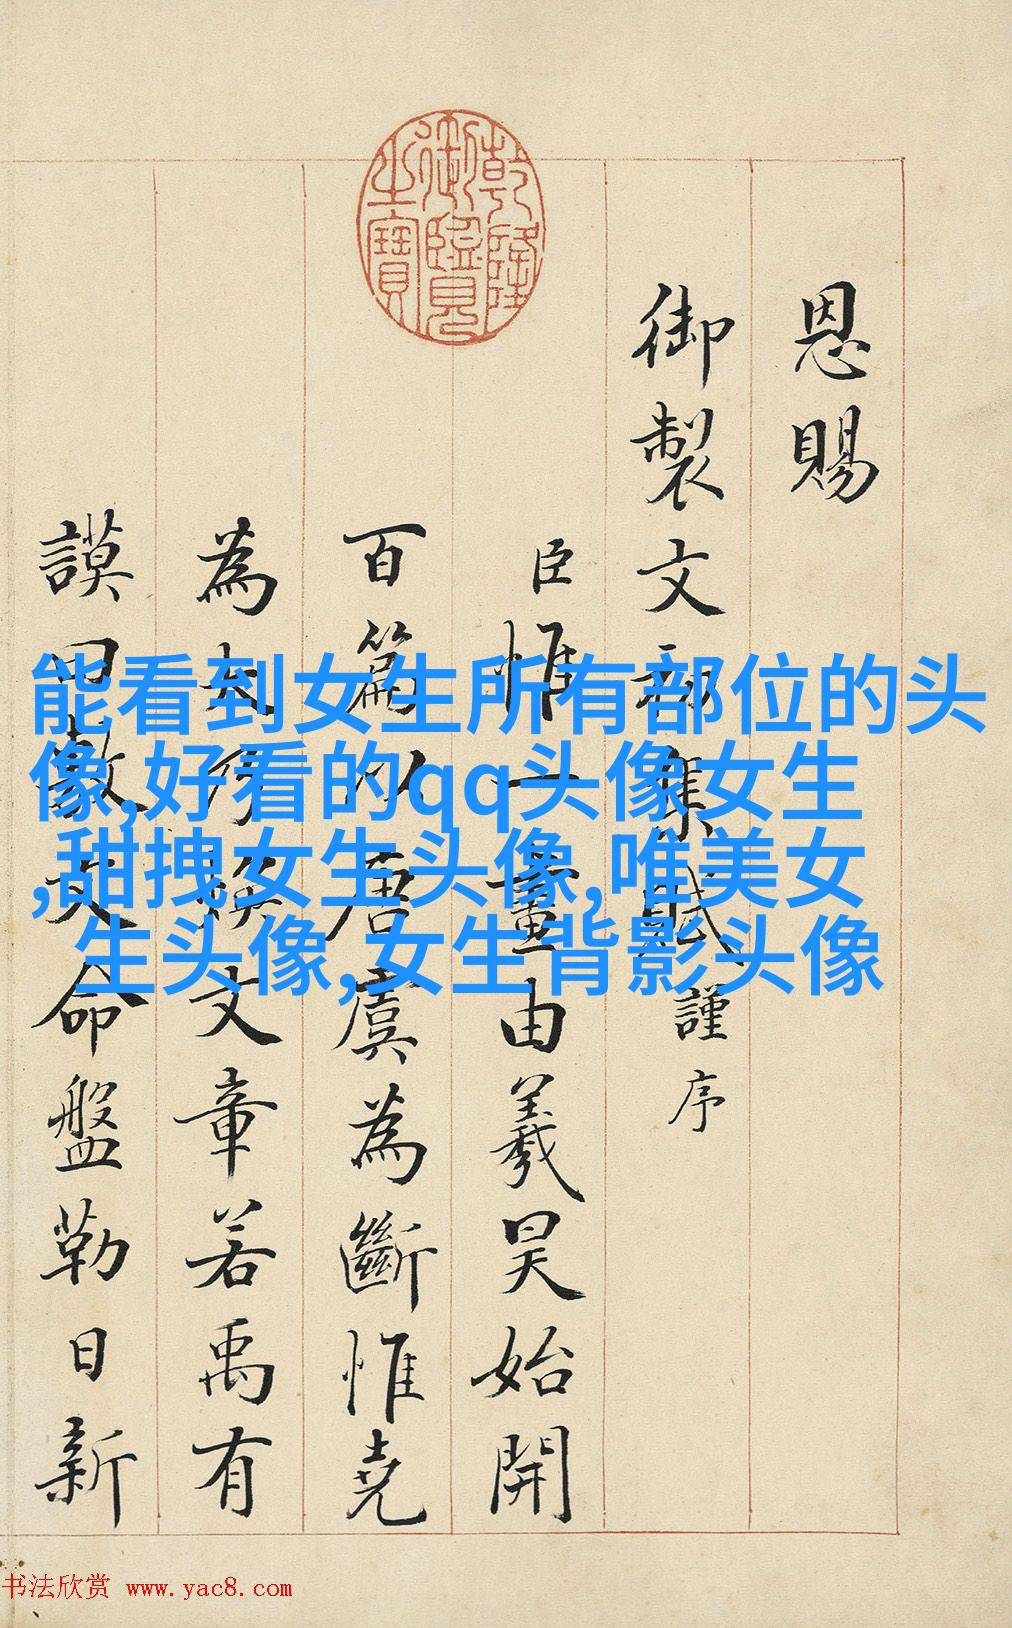 乾隆
御覽
之寶
恩賜
御製文集謹序
臣惟一畫由羲昊始開
百篇以唐虞為斷惟堯
為大乃煥文章若禹有
謨曰敷文命盤勒日新
能看到女生所有部位的头
像,好看的qq头像女生
,甜拽女生头像,唯美女
生头像,女生背影头像
书法欣赏 www.yac8.com